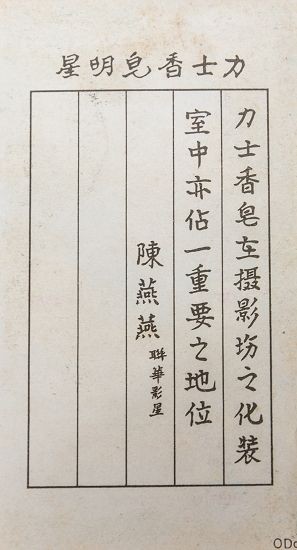 力士香皂明星
力士香皂在摄影场之化装
室中亦佔一重要之地位
陳燕燕 聯華影星
ODo